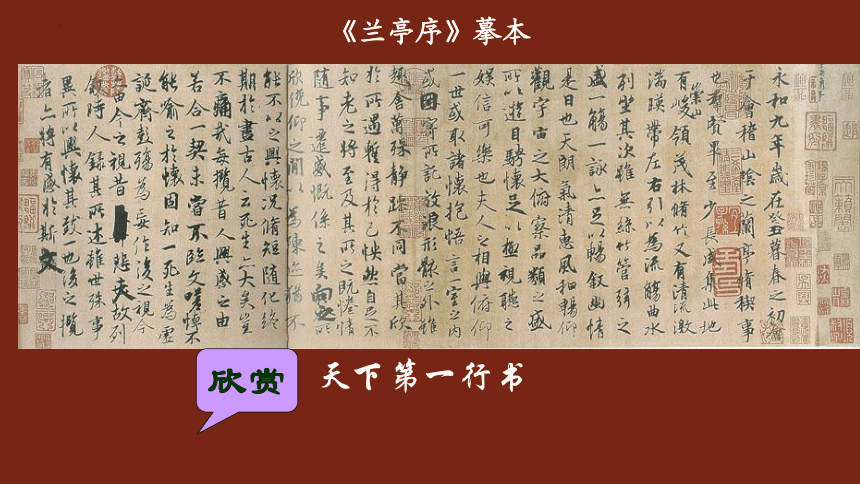 《兰亭序》摹本
永和九年歲在癸丑暮春之初會
于會稽山陰之蘭亭脩稧事
也羣賢畢至少長咸集此地
有崇山峻領茂林脩竹又有清流激
湍暎帶左右引以為流觴曲水
列坐其次雖無絲竹管弦之
盛一觴一詠亦足以暢叙幽情
是日也天朗氣清惠風和暢仰
觀宇宙之大俯察品類之盛
所以遊目騁懷足以極視聽之
娛信可樂也夫人之相與俯仰
一世或取諸懷抱悟言一室之內
或因寄所託放浪形骸之外雖
趣舍萬殊靜躁不同當其欣
於所遇暫得於己怏然自足不
知老之將至及其所之既惓情
隨事遷感慨係之矣向之所
欣俛仰之閒以為陳迹猶不
能不以之興懷況脩短隨化終
期於盡古人云死生亦大矣豈
不痛哉每攬昔人興感之由
若合一契未嘗不臨文嗟悼不
能喻之於懷固知一死生為虛
誕齊彭殤為妄作後之視今
亦由今之視昔悲夫故列
敘時人錄其所述雖世殊事
異所以興懷其致一也後之攬
者亦將有感於斯文
欣赏
天下第一行书